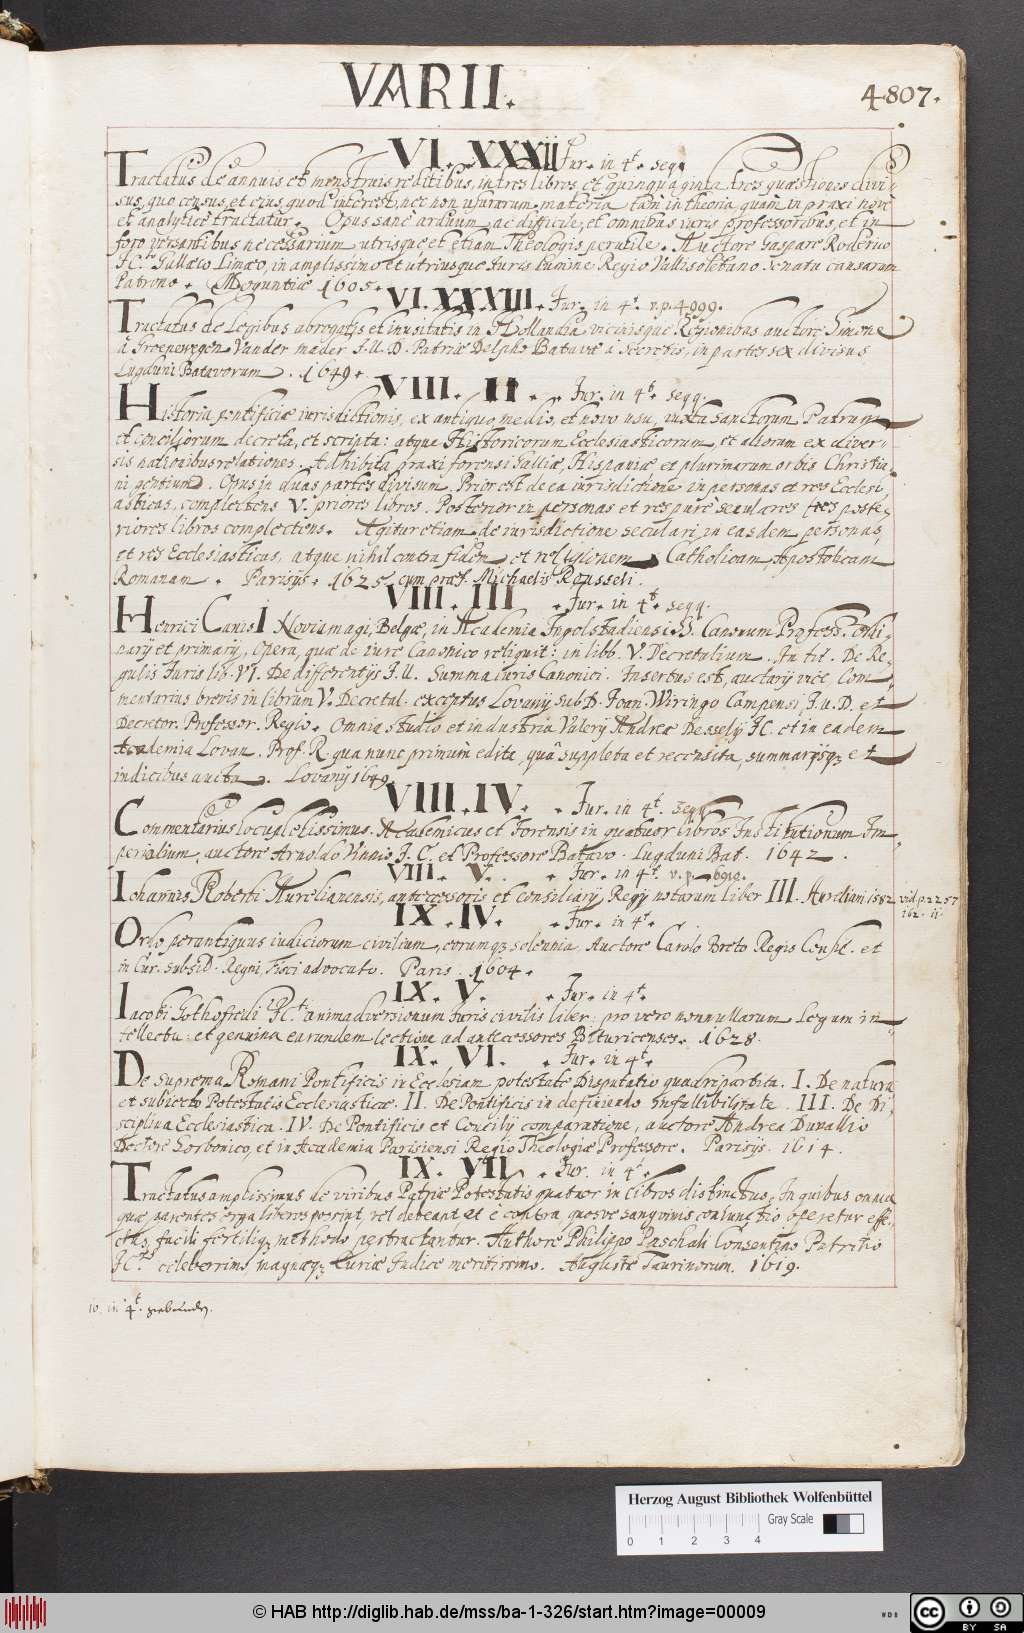 VARII.
4807.
VI. XXXII Jur. in 4t. seqq
Tractatus de annuis et menstruis reditibus, in tres libros et quinquaginta tres quæstiones divi-
sus, quo census, et eius, quod interest, nec non usurarum materia tam in theoria quam in praxi nove
et analyticè tractatur. Opus sanè arduum, ac difficile, et omnibus iuris professoribus, et in
foro versantibus necessarium utrisque et etiam Theologis perutile. Auctore Gaspare Roderico
JCto Gallæco Limæo, in amplissimo et utriusque Juris lumine Regio Vallisoletano Senatu causarum
Patrono. Moguntiæ 1605.
VI. XXXIII. Jur. in 4t. v.p. 4999.
Tractatus de Legibus abrogatis et inusitatis in Hollandia vicinisque Regionibus auctore Simone
à Groenewegen Vander made J.U.D. Patriæ Delpho Batavæ à Secretis, in partes sex divisus
Lugduni Batavorum. 1649.
VIII. II. Jur. in 4t. seqq.
Historia pontificiæ iurisdictionis, ex antiquo, medio, et novo usu, iuxta sanctorum Patrum
et conciliorum decreta, et scripta: atque Historicorum Ecclesiasticorum, et aliorum ex diver-
sis nationibus relationes. Adhibita praxi forensi Galliæ, Hispaniæ et plurimarum orbis Christia-
ni gentium. Opus in duas partes divisum. Prior est de ea iurisdictione in personas et res Ecclesi-
asticas, complectens V. priores libros. Posterior in personas et res purè seculares tres poste-
riores libros complectens. Agitur etiam de iurisdictione seculari in easdem personas,
et res Ecclesiasticas, atque nihil contra fidem et religionem Catholicam, Apostolicam
Romanam. Parisijs. 1625. cum præf. Michaelis Rousseli.
VIII. III. Jur. in 4t. seqq.
Henrici CanisI Noviomagi, Belgæ, in Academia Ingolstadiensi S. Canonum Profess. ordi-
narij et primarij, Opera, quæ de iure Canonico reliquit: in libb. V. Decretalium. In tit. De Re-
gulis Juris lib. VI. De differentijs J.U. Summa iuris Canonici. Insertus est, auctarij vice, Com-
mentarius brevis in librum V. Decretal. exceptus Lovanij sub D. Joan. Wiringo Campensi, J.U.D. et
Decretor. Professor. Regio. Omnia studio et industria Valerij Andreæ Desselij JC. et in eadem
Academia Lovan. Prof. R. qua nunc primùm edita, quâ suppleta et recensita, summarijsq; et
indicibus aucta. Lovanij 1649.
VIII. IV. Jur. in 4t. seqq.
Commentarius locupletissimus. Academicus et Forensis in quatuor libros Institutionum Im-
perialium, auctore Arnoldo Vinnio J.C. et Professore Batavo. Lugduni Bat. 1642.
VIII. V. Jur. in 4t. v.p. 6919.
Iohannis Roberti Aurelianensis, antecessoris et consiliarij Regij notarum liber III. Aureliani 1582 vid. p. 2257
162. ij
IX. IV. Jur. in 4t.
Ordo perantiquus iudiciorum civilium, eorumq; solennia. Auctore Carolo Breto Regis Consil. et
in Cur. subsid. Regni, Fisci advocato. Paris. 1604.
IX. V. Jur. in 4t.
Iacobi Gothofredi JCti animadversionum Juris civilis liber: pro vero nonnullarum Legum in-
tellectu: et genuina earundem lectione ad antecessores Bituricenses. 1628.
IX. VI. Jur. in 4t.
De suprema Romani Pontificis in Ecclesiam potestate Disputatio quadripartita. I. De natura
et subiecto Potestatis Ecclesiasticæ. II. De Pontificis in definiendo infallibilitate. III. De Di-
sciplina Ecclesiastica. IV. De Pontificis et Concilij comparatione, auctore Andrea Duvallio
Doctore Sorbonico, et in Academia Parisiensi Regio Theologiæ Professore. Parisijs. 1614.
IX. VII. Jur. in 4t.
Tractatus amplissimus de viribus Patriæ Potestatis quatuor in libros distinctus. In quibus omnia
quæ parentes erga liberos possint, vel debeant, et è contra, quosve sanguinis coniunctio operetur effe-
ctus, facili fertiliq; methodo pertractantur. Authore Philippo Paschali Consentino Patritio
JCto celeberrimo, magnæq; Curiæ Judice meritissimo. Augustæ Taurinorum. 1619.
10. in 4t. gebunden.
Herzog August Bibliothek Wolfenbüttel
Gray Scale
0 1 2 3 4
© HAB http://diglib.hab.de/mss/ba-1-326/start.htm?image=00009
WDB
cc BY SA